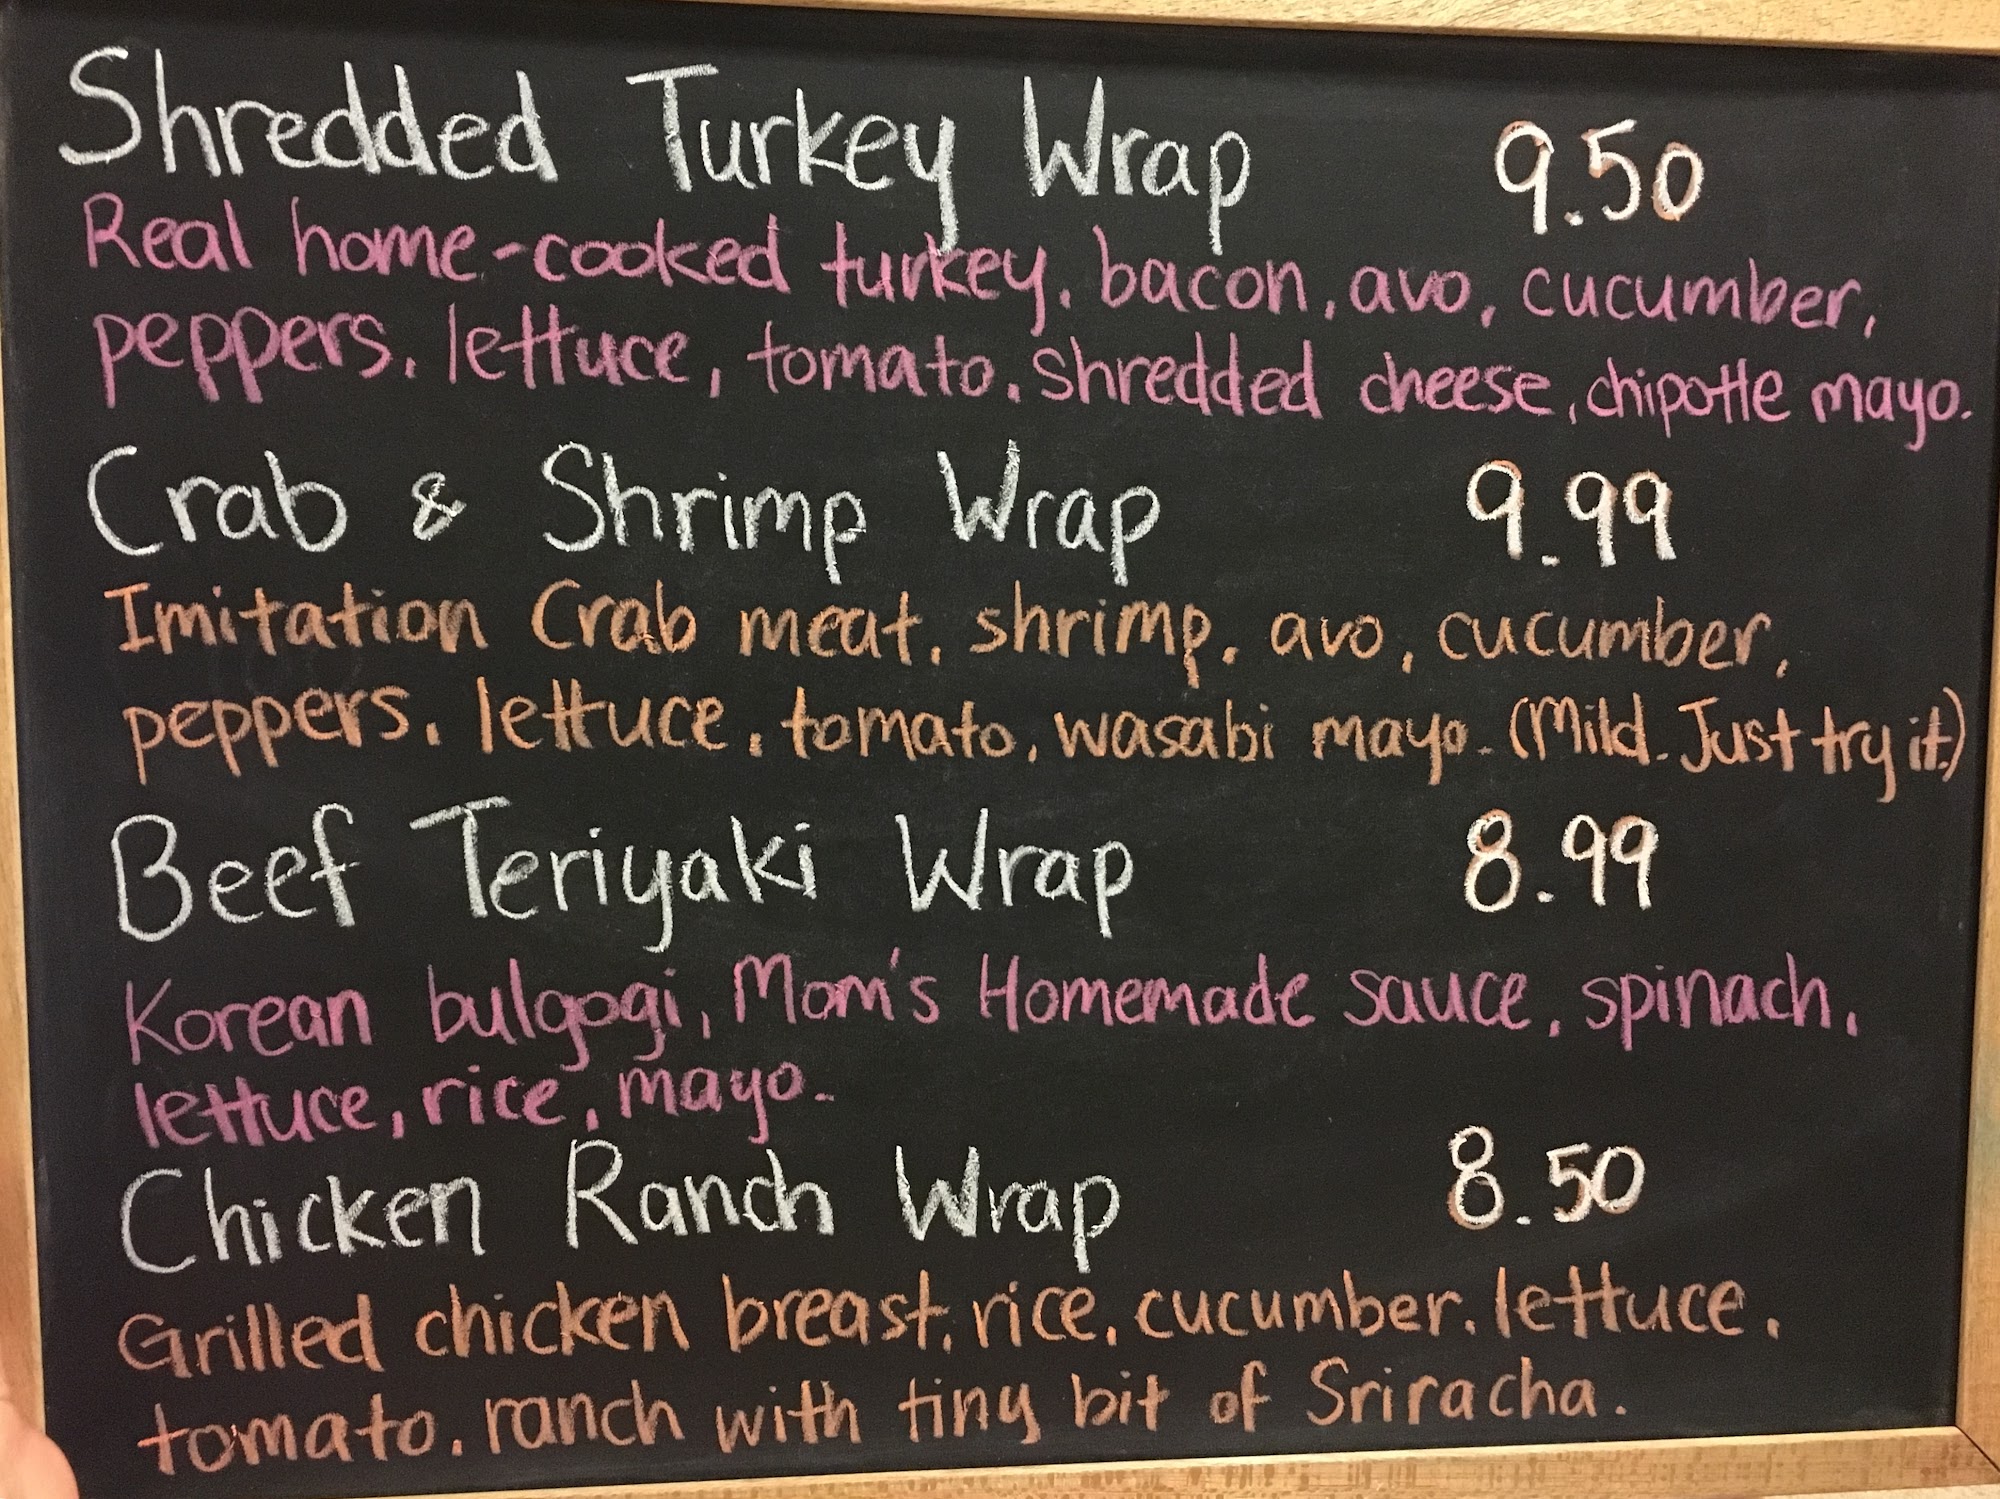 Shredded Turkey Wrap 9.50
Real home-cooked turkey, bacon, avo, cucumber,
peppers, lettuce, tomato, shredded cheese, chipotle mayo.
Crab & Shrimp Wrap 9.99
Imitation Crab meat, shrimp, avo, cucumber,
peppers, lettuce, tomato, wasabi mayo. (Mild. Just try it.)
Beef Teriyaki Wrap 8.99
Korean bulgogi, Mom's Homemade sauce, spinach,
lettuce, rice, mayo.
Chicken Ranch Wrap 8.50
Grilled chicken breast, rice, cucumber, lettuce,
tomato, ranch with tiny bit of Sriracha.